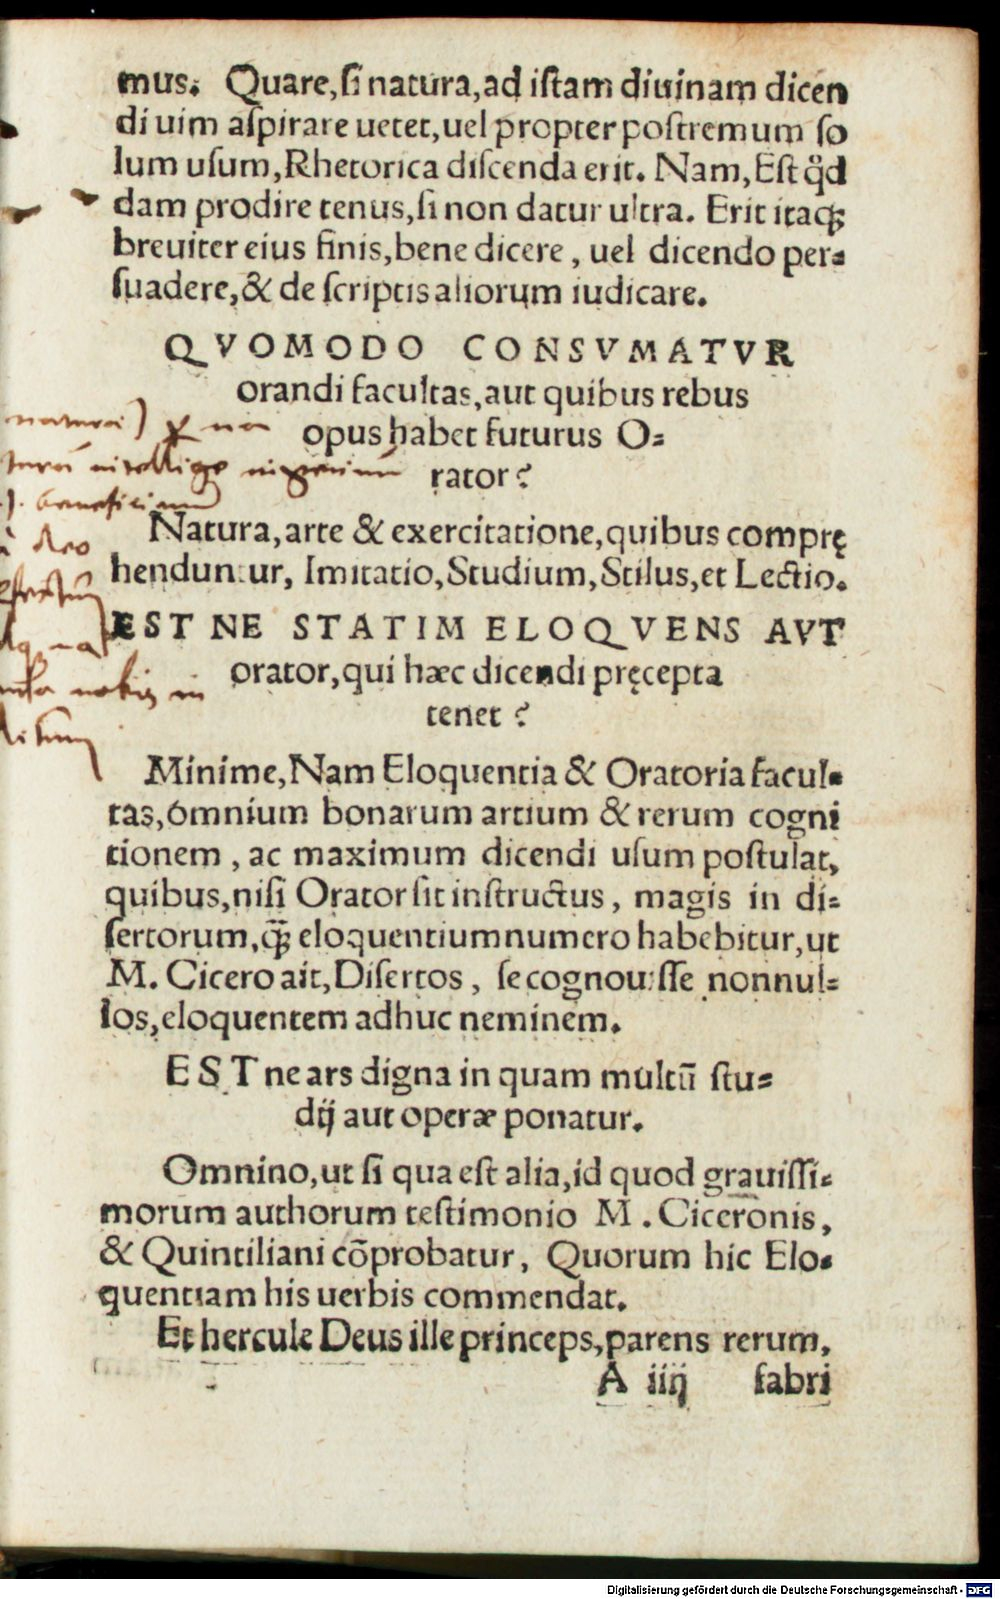 mus. Quare,ſi natura,ad iſtam diuinam dicen
di uim aſpirare uetet,uel propter poſtremum ſo
lum uſum,Rhetorica diſcenda erit. Nam,Eſt qͥd
dam prodire tenus,ſi non datur ultra. Erit itaqꝫ
breuiter eius finis,bene dicere, uel dicendo per⸗
ſuadere,& de ſcriptis aliorum iudicare.
QVOMODO CONSVMATVR
orandi facultas,aut quibus rebus
opus habet futurus O⸗
rator?
Natura,arte & exercitatione,quibus comprę
henduntur, Imitatio,Studium,Stilus,et Lectio.
EST NE STATIM ELOQVENS AVT
orator,qui hæc dicendi pręcepta
tenet?
Minime,Nam Eloquentia & Oratoria facul⸗
tas,omnium bonarum artium & rerum cogni
tionem, ac maximum dicendi uſum poſtulat,
quibus,niſi Orator ſit inſtructus, magis in di⸗
ſertorum,q̃ꝫ eloquentium numero habebitur,ut
M. Cicero ait,Diſertos, ſe cognouiſſe nonnul⸗
los,eloquentem adhuc neminem.
EST ne ars digna in quam multũ ſtu⸗
dij aut operæ ponatur.
Omnino,ut ſi qua eſt alia,id quod grauiſſi⸗
morum authorum teſtimonio M. Ciceronis,
& Quintiliani cõprobatur, Quorum hic Elo⸗
quentiam his uerbis commendat.
Et hercule Deus ille princeps,parens rerum,
A iiij fabri
natura)
intellige ingenium
beneficium
deo
nobis in
Digitalisierung gefördert durch die Deutsche Forschungsgemeinschaft - DFG